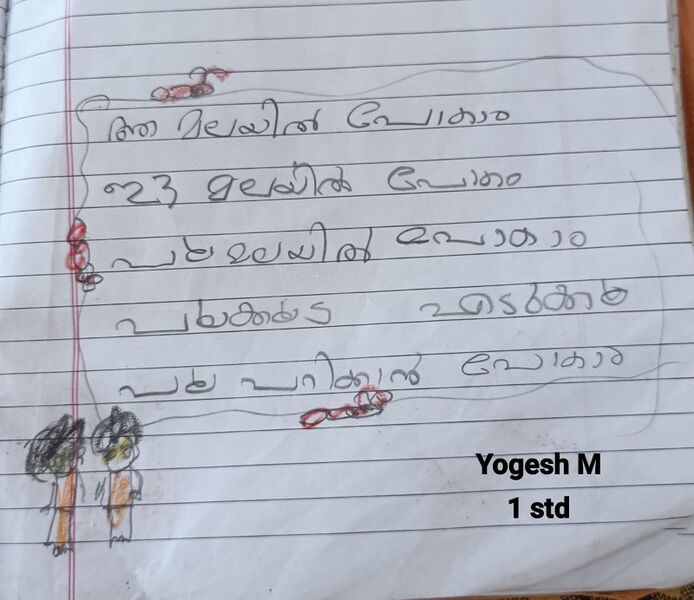 ആ മലയിൽ പോകാം
ഈ മലയിൽ പോകാം
പൂ മലയിൽ പോകാം
പൂക്കൂട എടുക്കൂ
പൂ പറിക്കാൻ പോകാം
Yogesh M
1 std